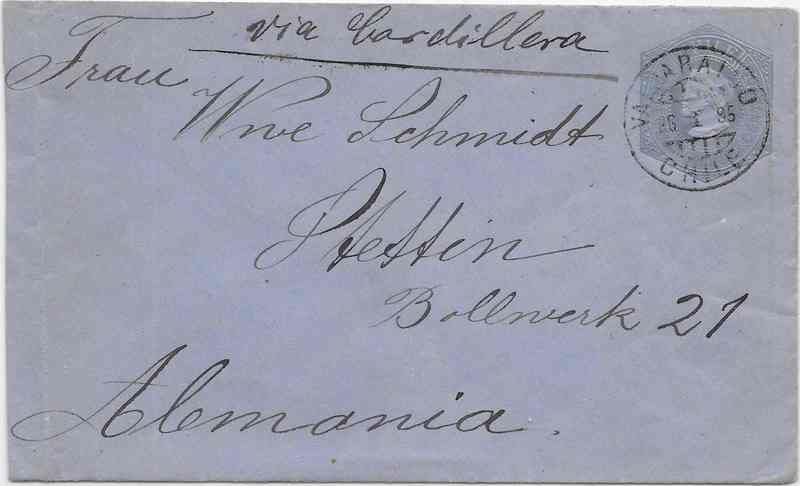 via Cordillera
Frau
Wwe Schmidt
Stettin
Bollwerk 21
Alemania.
VALPARAISO
86
CHILE